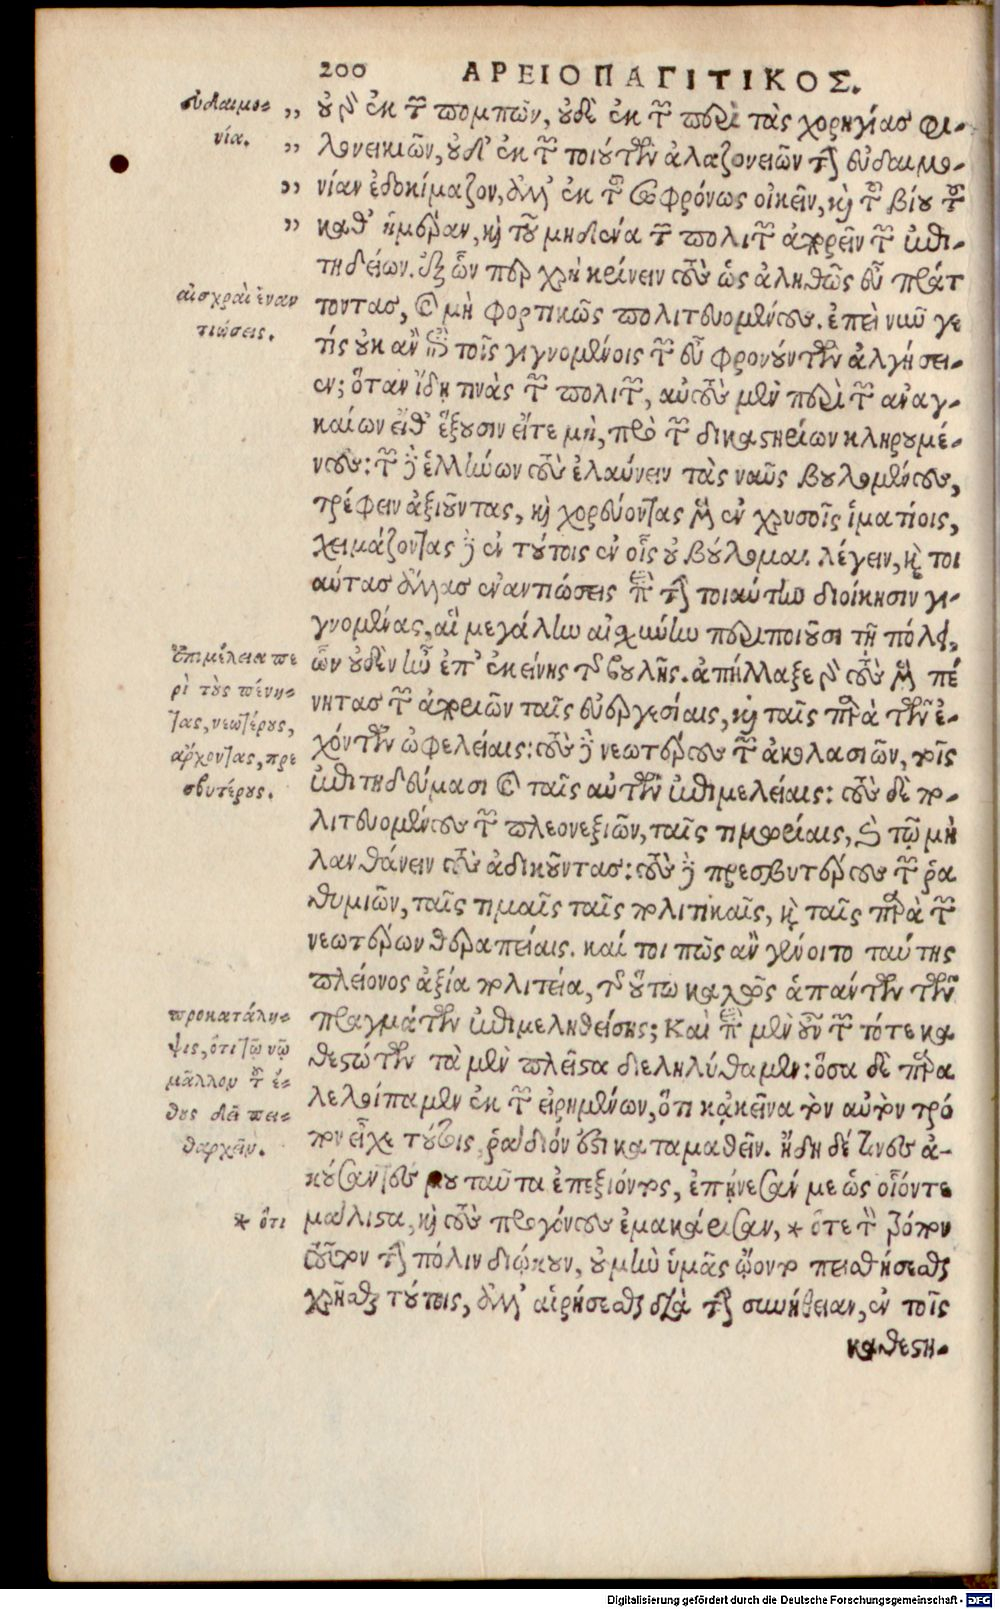 200 ΑΡΕΙΟΠΑΓΙΤΙΚΟΣ.
εὐδαιμο-
νία.
οὐ γὰρ ἐκ τῶν πομπῶν, οὐδὲ ἐκ τῶν περὶ τὰς χορηγίας φι-
λονεικιῶν, οὐδ' ἐκ τῶν τοιούτων ἀλαζονειῶν τὴν εὐδαιμο-
νίαν ἐδοκίμαζον, ἀλλ' ἐκ τοῦ σωφρόνως οἰκεῖν, καὶ τοῦ βίου τοῦ
καθ' ἡμέραν, καὶ τοῦ μηδένα τῶν πολιτῶν ἀπορεῖν τῶν ἐπι-
τηδείων. ἐξ ὧν περ χρὴ κρίνειν τοὺς ὡς ἀληθῶς εὖ πράτ
αἰσχραὶ ἐναν
τιώσεις.
τοντας, καὶ μὴ φορτικῶς πολιτευομένους. ἐπεὶ νῦν γε
τίς οὐκ ἂν ἐπὶ τοῖς γιγνομένοις τῶν εὖ φρονούντων ἀλγήσει-
εν; ὅταν ἴδῃ τινὰς τῶν πολιτῶν, αὐτοὺς μὲν περὶ τῶν ἀναγ-
καίων εἴθ' ἕξουσιν εἴτε μὴ, πρὸ τῶν δικαστηρίων κληρουμέ-
νους: τῶν δὲ ἑλλήνων τοὺς ἐλαύνειν τὰς ναῦς βουλομένους,
τρέφειν ἀξιοῦντας, καὶ χορεύοντας μὲν ἐν χρυσοῖς ἱματίοις,
χειμάζοντας δὲ ἐν τούτοις ἐν οἷς οὐ βούλομαι λέγειν, καὶ τοι
αύτας ἄλλας ἐναντιώσεις περὶ τὴν τοιαύτην διοίκησιν γι-
γνομένας, αἳ μεγάλην αἰσχύνην περιποιοῦσι τῇ πόλει,
ἐπιμέλεια πε
ρὶ τοὺς πένη-
τας, νεωτέρους,
ἄρχοντας, πρε
σβυτέρους.
ὧν οὐδὲν ἦν ἐπ' ἐκείνης τῆς βουλῆς. ἀπήλλαξε γὰρ τοὺς μὲν πέ
νητας τῶν ἀποριῶν ταῖς εὐεργεσίαις, καὶ ταῖς παρὰ τῶν ἐ-
χόντων ὠφελείαις: τοὺς δὲ νεωτέρους τῶν ἀκολασιῶν, τοῖς
ἐπιτηδεύμασι καὶ ταῖς αὐτῶν ἐπιμελείαις: τοὺς δὲ πο-
λιτευομένους τῶν πλεονεξιῶν, ταῖς τιμωρίαις, καὶ τῷ μὴ
λανθάνειν τοὺς ἀδικοῦντας: τοὺς δὲ πρεσβυτέρους τῶν ῥα
θυμιῶν, ταῖς τιμαῖς ταῖς πολιτικαῖς, καὶ ταῖς παρὰ τῶν
νεωτέρων θεραπείαις. καί τοι πῶς ἂν γένοιτο ταύτης
πλείονος ἀξία πολιτεία, τῆς οὕτω καλῶς ἁπάντων τῶν
προκατάλη-
ψις, ὅτι τῷ νῷ
μᾶλλον τοῦ ἔ-
θους δεῖ πει-
θαρχεῖν.
πραγμάτων ἐπιμεληθείσης; Καὶ περὶ μὲν οὖν τῶν τότε κα
θεστώτων τὰ μὲν πλεῖστα διεληλύθαμεν: ὅσα δὲ παρα
λελοίπαμεν ἐκ τῶν εἰρημένων, ὅτι κἀκεῖνα τὸν αὐτὸν τρό
πον εἶχε τούτοις, ῥᾴδιόν ἐστι καταμαθεῖν. ἤδη δέ τινες ἀ-
κούσαντές μου ταῦτα ἐπεξιόντος, ἐπῄνεσάν με ὡς οἷόντε
* ὅτι
μάλιστα, καὶ τοὺς προγόνους ἐμακάρισαν, * ὅτε τὸν τρόπον
τοῦτον τὴν πόλιν διῴκουν, οὐ μὴν ὑμᾶς ᾤοντο πεισθήσεσθαι
χρῆσθαι τούτοις, ἀλλ' αἱρήσεσθαι διὰ τὴν συνήθειαν, ἐν τοῖς
καθεστη-
Digitalisierung gefördert durch die Deutsche Forschungsgemeinschaft - DFG